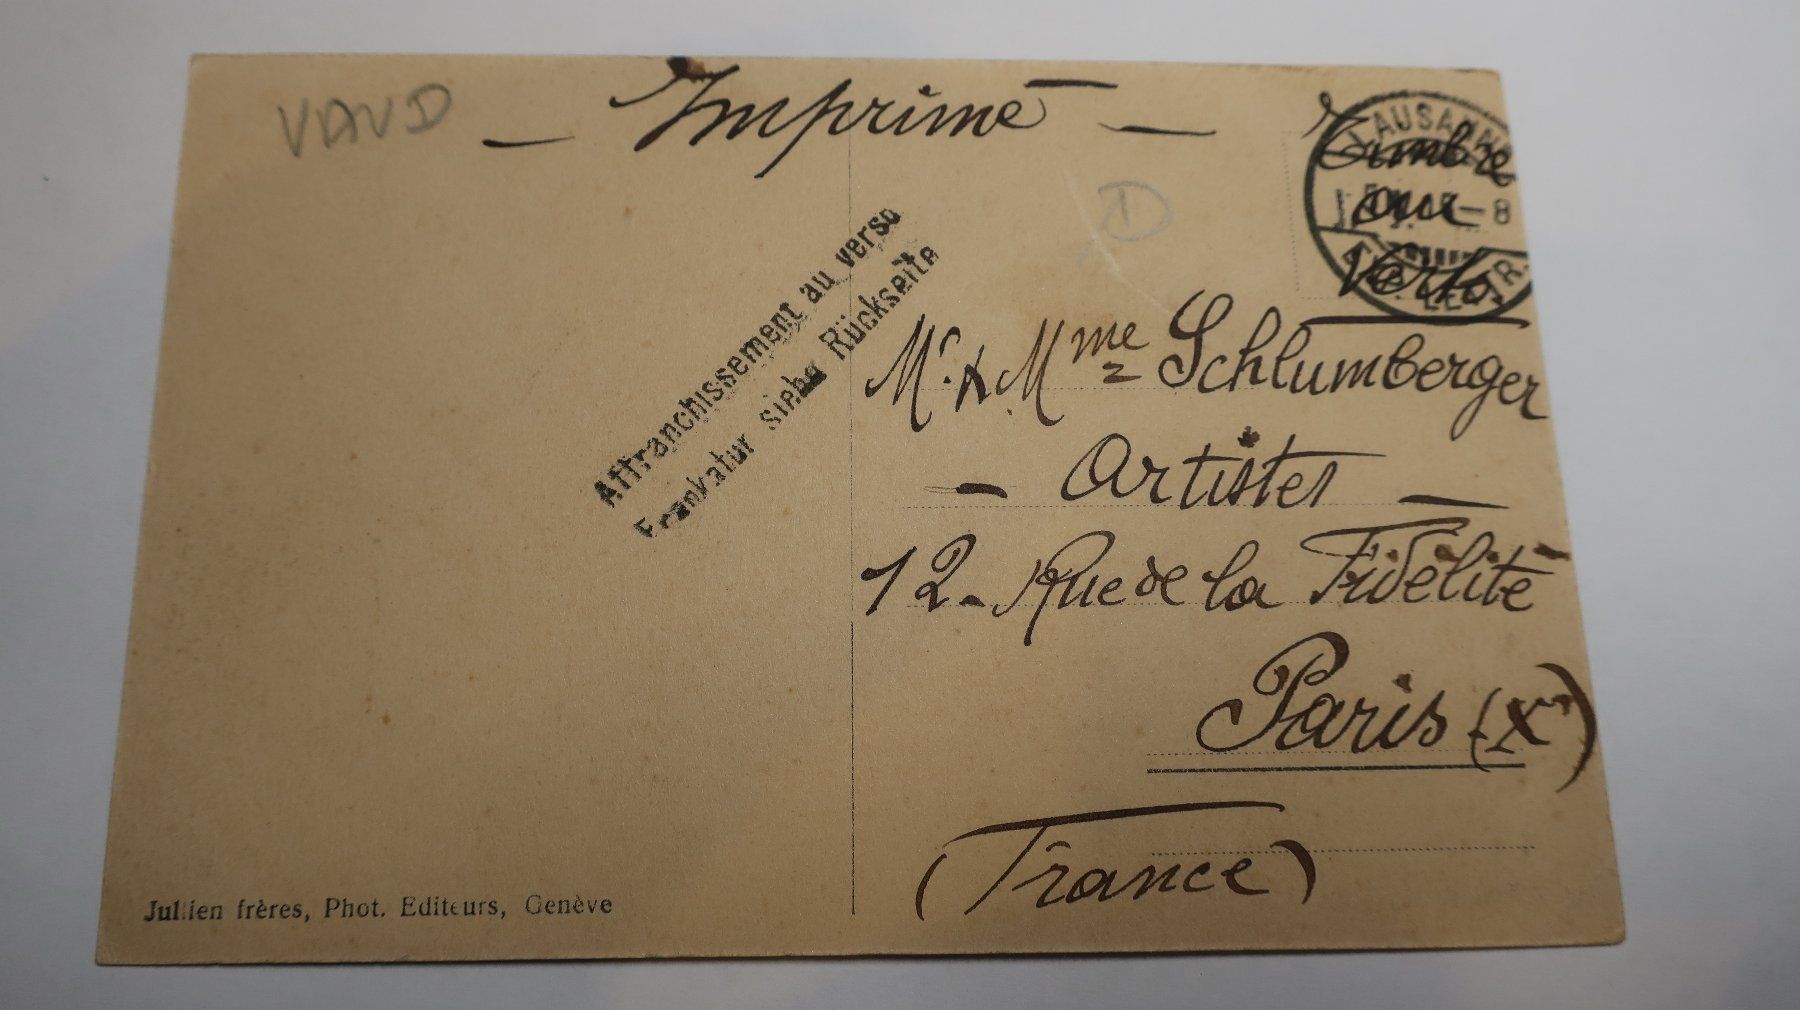 VAUD
— Imprimé —
LAUSANNE
Timbre
au
verso.
— 8
Affranchissement au verso
Frankatur siehe Rückseite
Mr. & Mme Schlumberger
— Artistes —
12 - Rue de la Fidélité
Paris (Xe)
(France)
Jullien frères, Phot. Editeurs, Genève